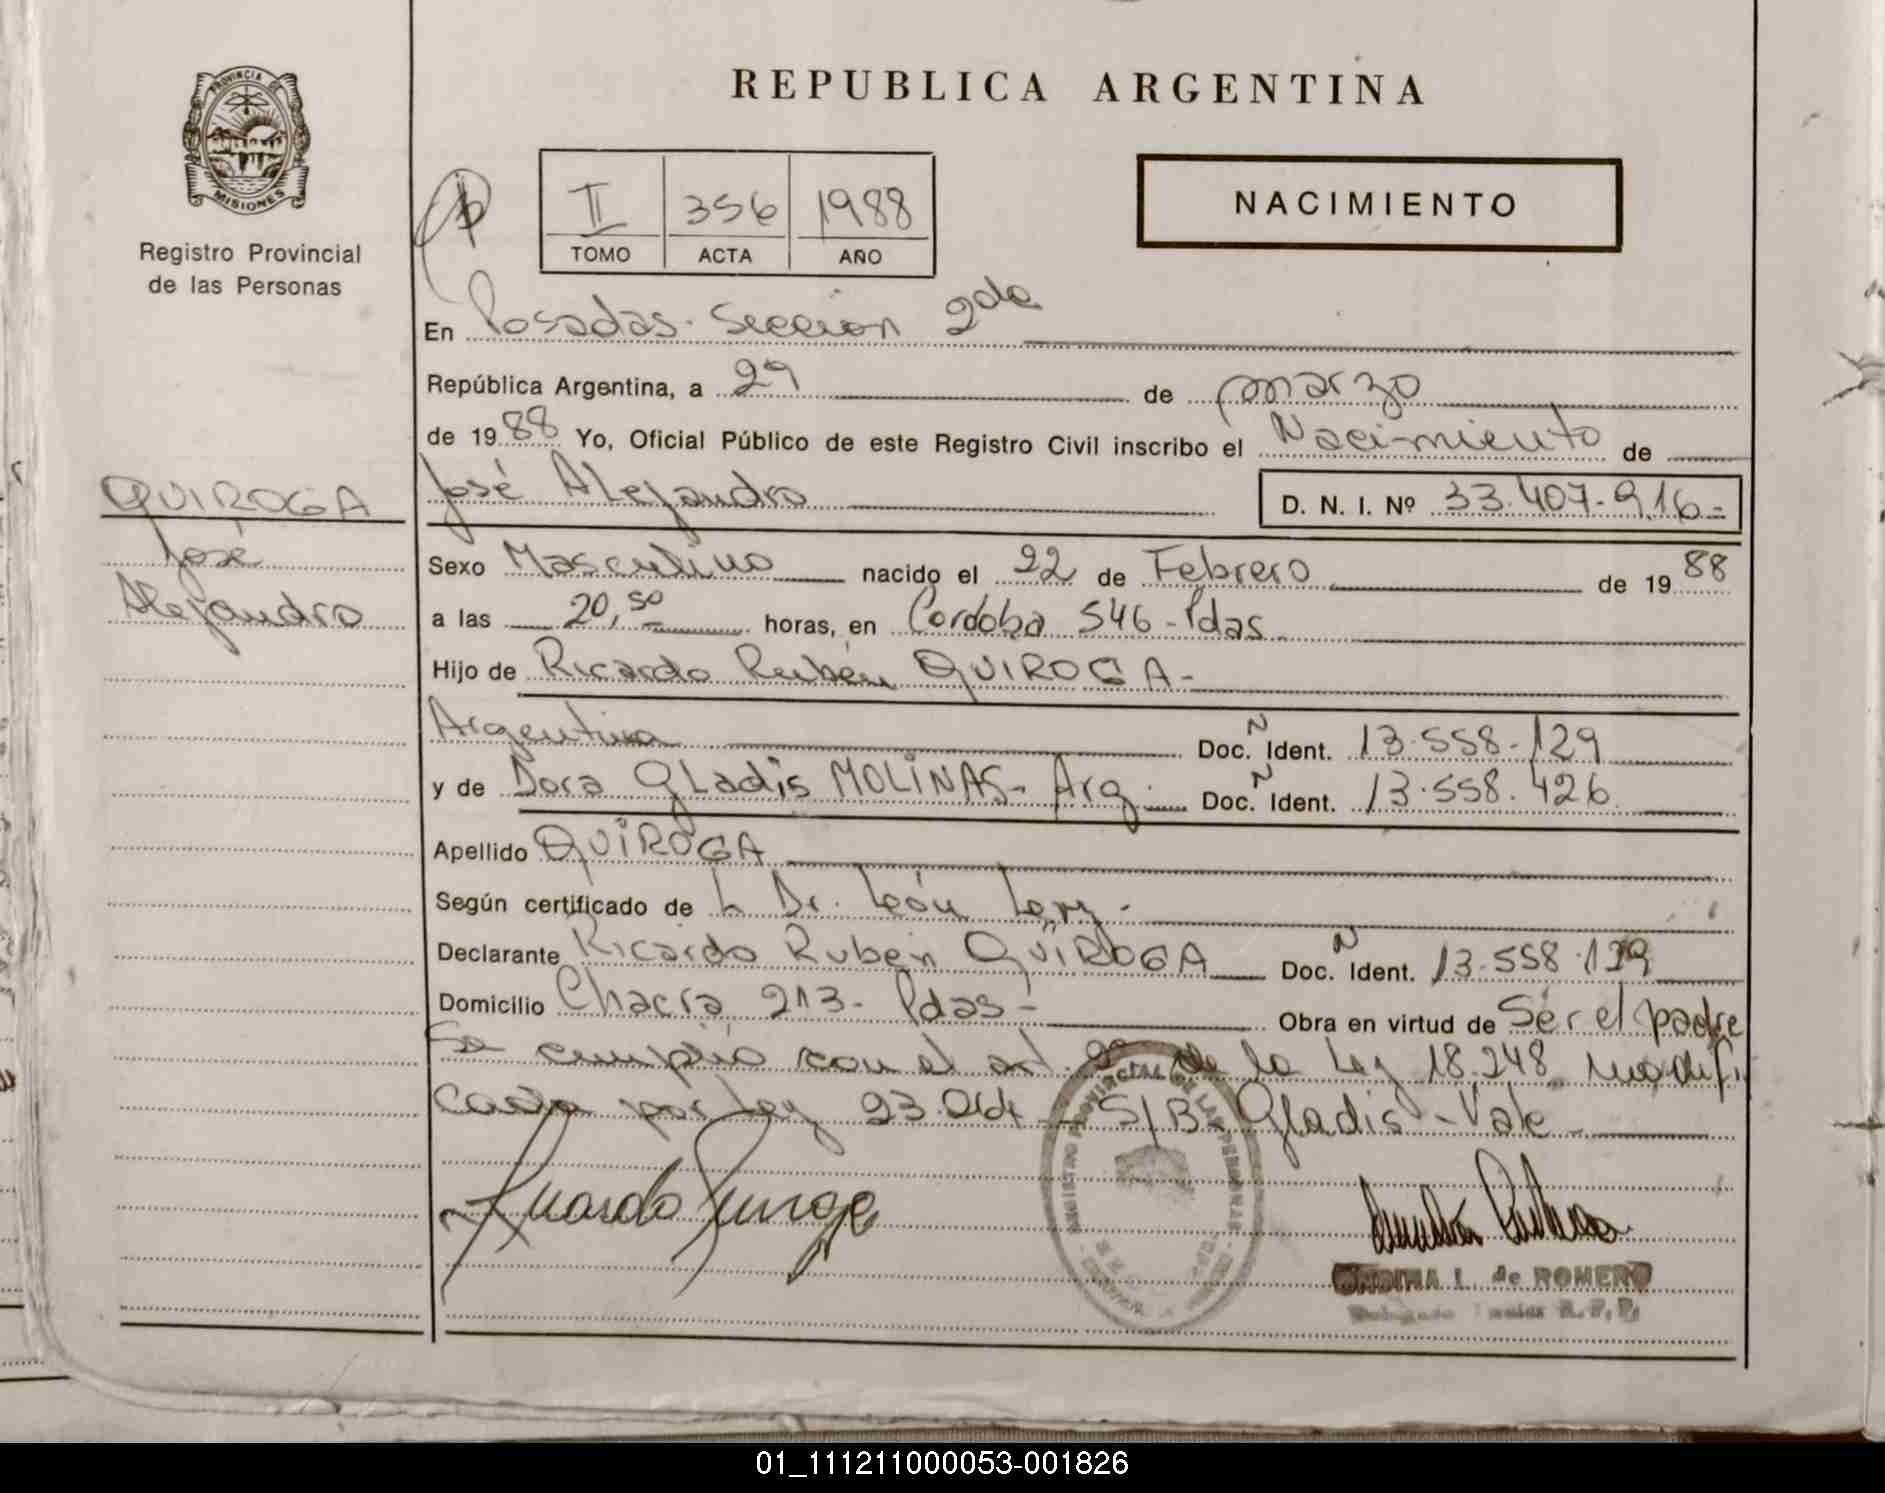 REPUBLICA ARGENTINA
PROVINCIA DE
MISIONES
Registro Provincial
de las Personas
II 356 1988
TOMO ACTA AÑO
NACIMIENTO
En Posadas. Sección 2da
República Argentina, a 29 de marzo
de 1988 Yo, Oficial Público de este Registro Civil inscribo el Nacimiento de
QUIROGA
José
Alejandro
José Alejandro D. N. I. Nº 33.407.916-
Sexo Masculino nacido el 22 de Febrero de 1988
a las 20,50 horas, en Cordoba 546 - Pdas
Hijo de Ricardo Rubén QUIROGA-
Argentina Doc. N Ident. 13.558.129
y de Dora Gladis MOLINAS- Arg. Doc. N Ident. 13.558.426
Apellido QUIROGA
Según certificado de Dr. León
Declarante Ricardo Ruben QUIROGA Doc. N Ident. 13.558.129
Domicilio Chacra 213- Pdas- Obra en virtud de Ser el padre
Se cumplió con el art. de la Ley 18.248 modifi
cada por Ley 23.264 - S/B: Gladis - Vale
REGISTRO PROVINCIAL DE LAS PERSONAS
L. de ROMERO
R.P.P.
01_111211000053-001826